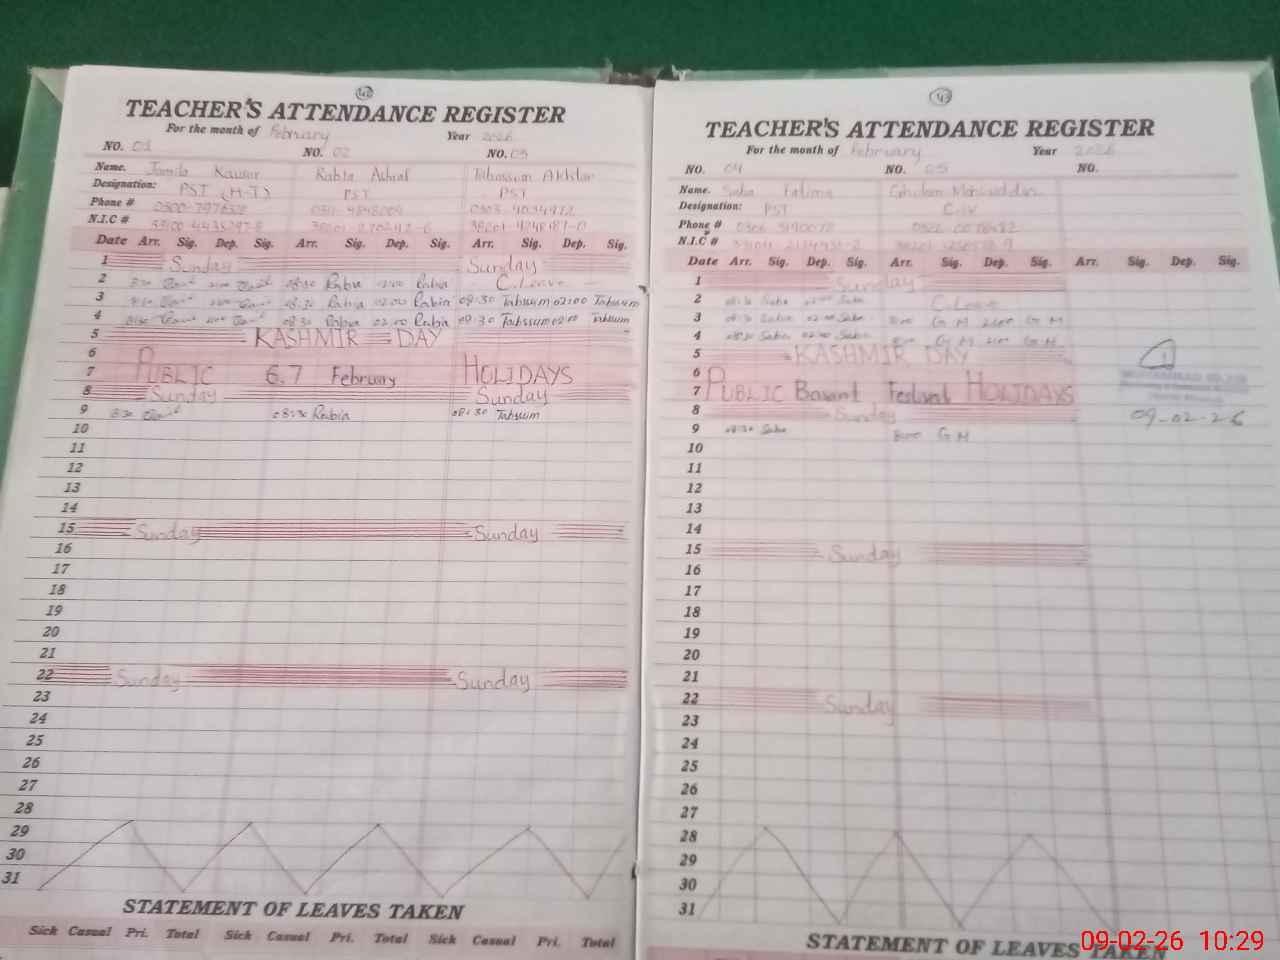 42
TEACHER'S ATTENDANCE REGISTER
For the month of February Year 2026
NO. 01 NO. 02 NO. 03
Name. Jamila Kausar Rabia Ashraf Tabassum Akhtar
Designation: PST (H-T) PST PST
Phone #
N.I.C #
Date Arr. Sig. Dep. Sig. Arr. Sig. Dep. Sig. Arr. Sig. Dep. Sig.
1 Sunday Sunday
2 08:30 Rabia 02:00 Rabia C.Leave
3 08:30 Rabia 02:00 Rabia 08:30 Tabsum 02:00 Tabsum
4 08:30 Rabia 02:00 Rabia 08:30 Tabsum 02:00 Tabsum
5 KASHMIR DAY
6
7 PUBLIC 6.7 February HOLIDAYS
8 Sunday Sunday
9 8:30 08:30 Rabia 08:30 Tabsum
10
11
12
13
14
15 Sunday Sunday
16
17
18
19
20
21
22 Sunday Sunday
23
24
25
26
27
28
29
30
31
STATEMENT OF LEAVES TAKEN
Sick Casual Pri. Total Sick Casual Pri. Total Sick Casual Pri. Total
43
TEACHER'S ATTENDANCE REGISTER
For the month of February Year 2026
NO. 04 NO. 05 NO.
Name. Saba Fatima Ghulam
Designation: PST C.IV
Phone #
N.I.C #
Date Arr. Sig. Dep. Sig. Arr. Sig. Dep. Sig. Arr. Sig. Dep. Sig.
1 Sunday
2 08:30 Saba 02:00 Saba C.Leave
3 08:30 Saba 02:00 Saba 8:00 G M 2:00 G M
4 08:30 Saba 02:00 Saba 8:00 G M 2:00 G M
5 KASHMIR DAY
6
7 PUBLIC Basant Festival HOLIDAYS
8 Sunday
09-02-26
9 08:30 Saba 8:00 G M
10
11
12
13
14
15 Sunday
16
17
18
19
20
21
22 Sunday
23
24
25
26
27
28
29
30
31
STATEMENT OF LEAVES TAKEN
09-02-26 10:29